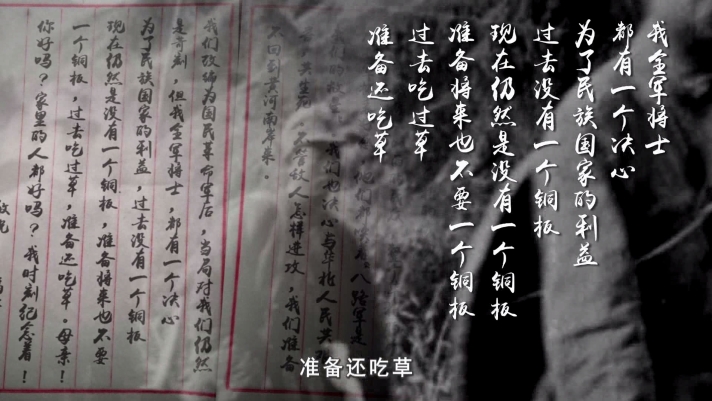 我全军将士
都有一个决心
为了民族国家的利益
过去没有一个铜板
现在仍然是没有一个铜板
准备将来也不要一个铜板
过去吃过草
准备还吃草
八路军是
我们也决心与华北人民共
共生死，不管敌人怎样进攻，我们准备
不回到黄河南岸来。
我们改编为国民革命军后，当局对我们仍然
是苛刻，但我全军将士，都有一个决心
为了民族国家的利益，过去没有一个铜板
现在仍然是没有一个铜板，准备将来也不要
一个铜板，过去吃过草，准备还吃草。母亲！
你好吗？家里的人都好吗？我时刻纪念着！
敬祝
准备还吃草